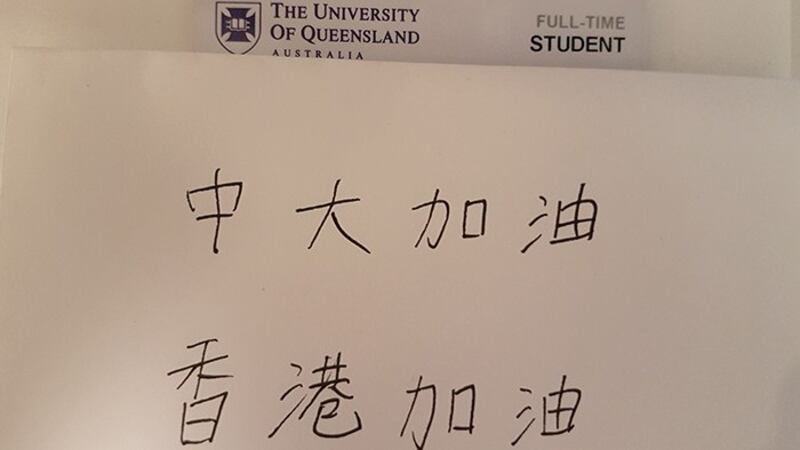 THE UNIVERSITY
OF QUEENSLAND
AUSTRALIA
FULL-TIME
STUDENT
中大加油
香港加油